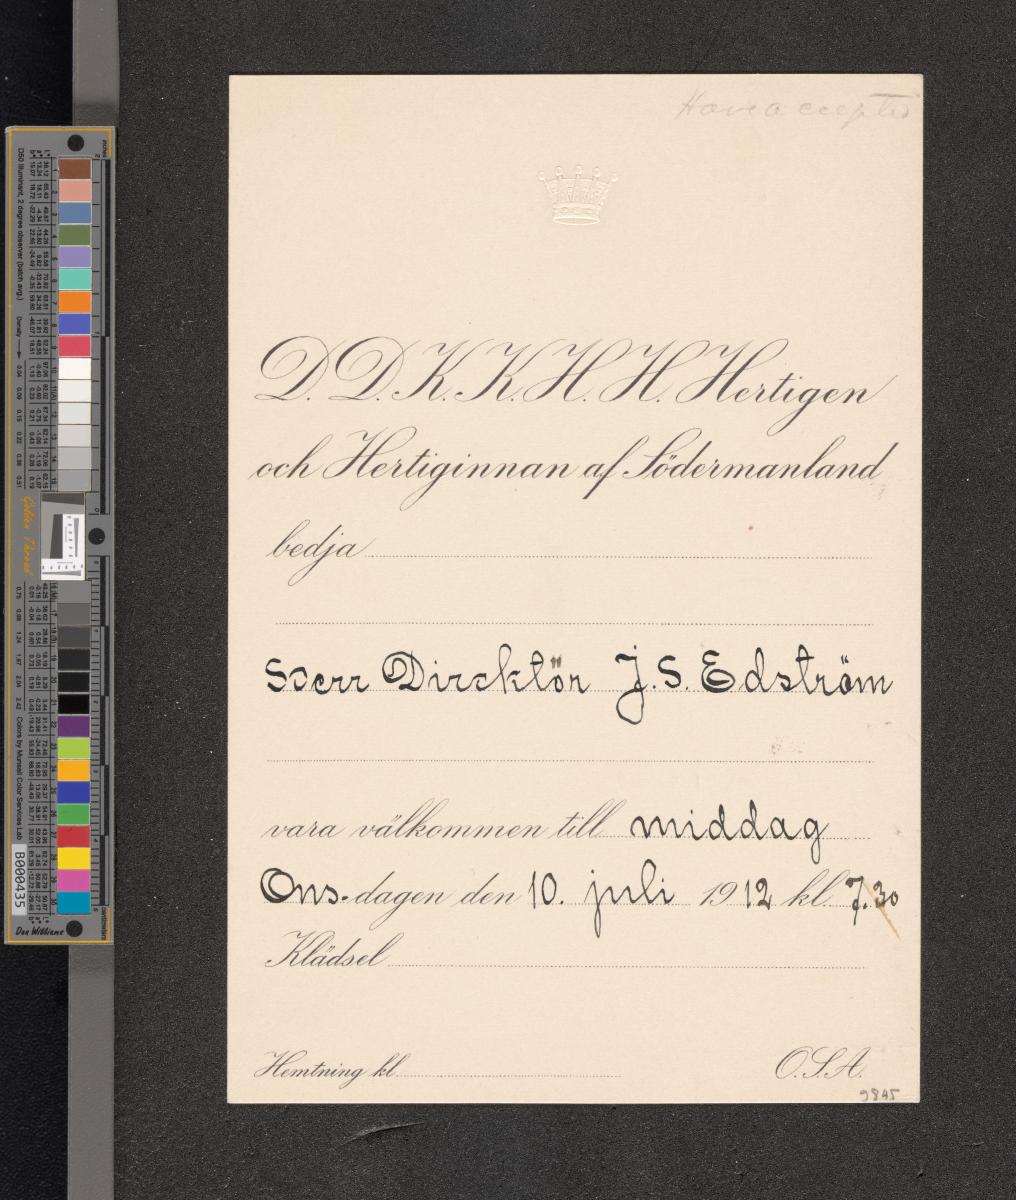 Have accepted
D. D. K. K. H. H. Hertigen
och Hertiginnan af Södermanland
bedja
Herr Direktör J. S. Edström
vara välkommen till middag
Ons-dagen den 10. juli 1912 kl. 7.30
Klädsel
Hemtning kl.
O.S.A.
9845
D50 Illuminant, 2 degree observer (batch avg.)
Density
Golden Thread
Colors by Munsell Color Services Lab
B000435
Don Williams
inches
centimeters